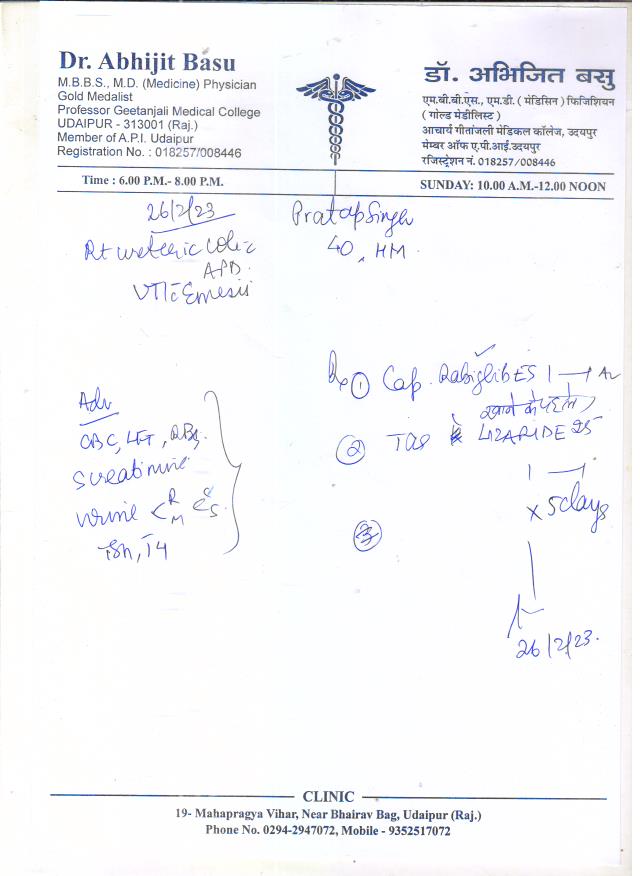 Dr. Abhijit Basu
M.B.B.S., M.D. (Medicine) Physician
Gold Medalist
Professor Geetanjali Medical College
UDAIPUR - 313001 (Raj.)
Member of A.P.I. Udaipur
Registration No. : 018257/008446
डॉ. अभिजित बसु
एम.बी.बी.एस., एम.डी. ( मेडिसिन ) फिजिशियन
( गोल्ड मेडीलिस्ट )
आचार्य गीतांजली मेडिकल कॉलेज, उदयपुर
मेम्बर ऑफ ए.पी.आई.उदयपुर
रजिस्ट्रेशन नं. 018257/008446
Time : 6.00 P.M.- 8.00 P.M.
SUNDAY: 10.00 A.M.-12.00 NOON
26/2/23
Pratap Singh
40, HM
Rt ureteric colic
APD
UTI c̄ Emesis
Rx ① Cap. RabiglibES 1
खाने के पहले
② Tab LIZARIDE 25
1
x 5 days
③
Adv
CBC, LFT, RBS
S creatinine
Urine < R M C S
Tsh, T4
26/2/23.
CLINIC
19- Mahapragya Vihar, Near Bhairav Bag, Udaipur (Raj.)
Phone No. 0294-2947072, Mobile - 9352517072